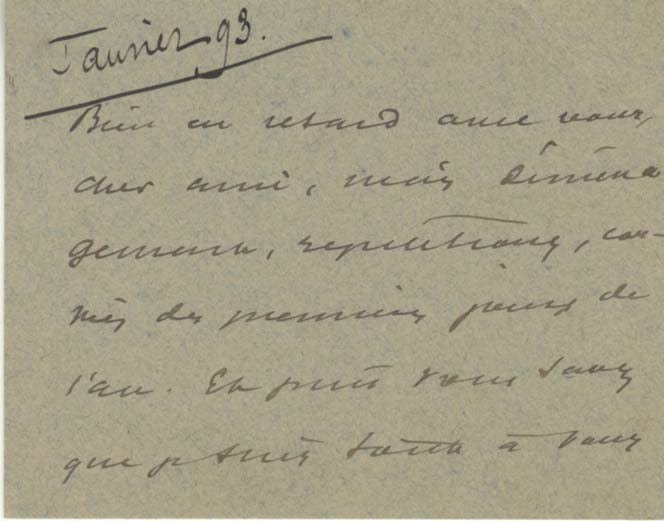 Janvier 93.
Bien en retard avec vous,
cher ami, mais déména
gements, répétitions, cor-
vées des premiers jours de
l'an. Et puis vous savez
que je suis toute à vous